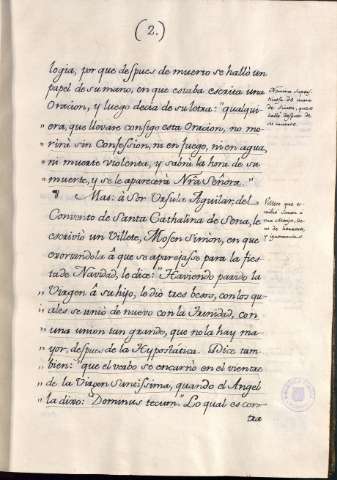 (2.)
logia, por que despues de muerto se hallò un
papel de su mano, en que estaba escrita una
Oracion, y luego decia de su letra: "qualqui-
"era, que llevare consigo esta Oracion, no mo-
"rirà sin Confession, ni en fuego, ni en agua,
"ni muerte violenta, y sabrà la hora de su
"muerte, y se le aparecerà Nrã Señora."
Mas: à Sor Ursula Aguilar, del
Convento de Santa Cathalina de Sena, le
escrivió un Villete, Mosen Simon, en que
exorandola à que se aparejasse para la fies-
ta de Navidad, le dice: "Haviendo parido la
"Virgen â su hijo, le diò tres besos, con los qu-
"ales se uniò de nuevo con la Trinidad, con
"una union tan grande, que no la hay ma-
"yor, despues de la Hypostatica. Y dice tam-
bien: "que el verbo se encarnò en el vientre
"de la Virgen Santissima, quando el Angel
"la dixo: "Dominus tecum." Lo qual es con-
tra
Nomina supers-
ticiosa de mano
de Simon, que se
hallò despues de
su muerte.
Villete que es-
cribe Simon a
una Monja, lle-
no de
y ignorancias.